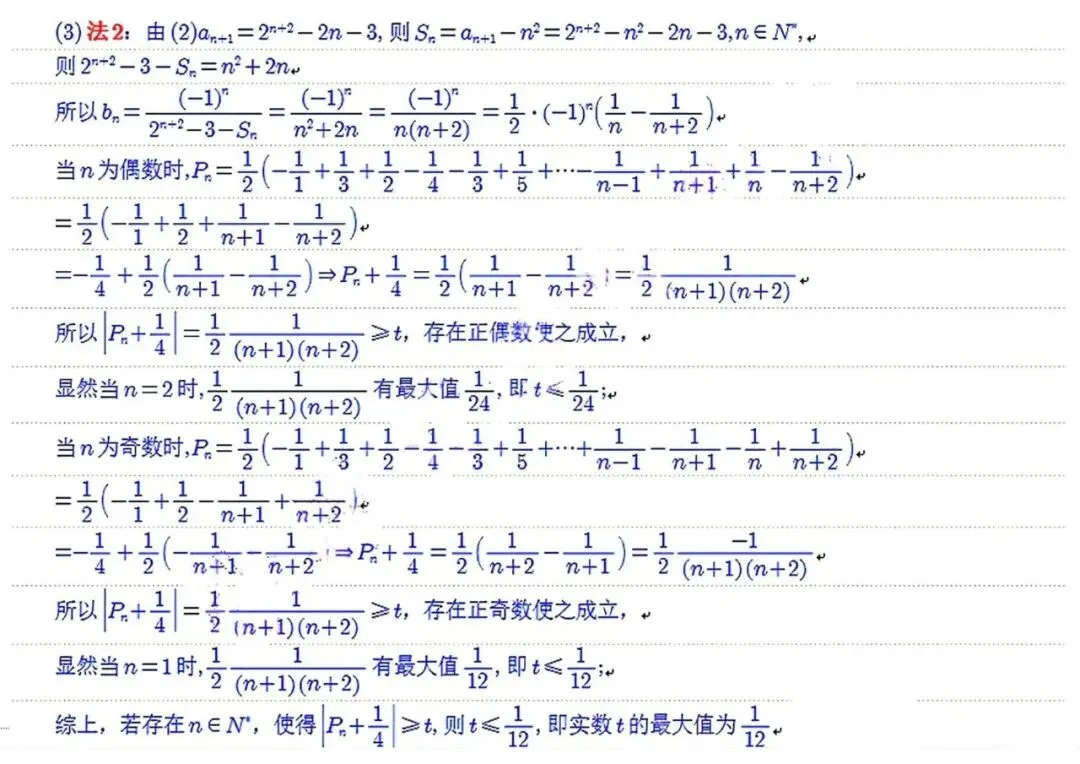 (3) 法2：由(2)aₙ₊₁=2ⁿ⁺²−2n−3, 则 Sₙ=aₙ₊₁−n²=2ⁿ⁺²−n²−2n−3,n∈N*,
则 2ⁿ⁺²−3−Sₙ=n²+2n
所以 bₙ=(−1)ⁿ/(2ⁿ⁺²−3−Sₙ)=(−1)ⁿ/(n²+2n)=(−1)ⁿ/(n(n+2))=1/2·(−1)ⁿ(1/n−1/(n+2))
当 n 为偶数时,Pₙ=1/2(−1/1+1/3+1/2−1/4−1/3+1/5+⋯−1/(n−1)+1/(n+1)+1/n−1/(n+2))
=1/2(−1/1+1/2+1/(n+1)−1/(n+2))
=−1/4+1/2(1/(n+1)−1/(n+2))⇒Pₙ+1/4=1/2(1/(n+1)−1/(n+2))=1/2 1/((n+1)(n+2))
所以|Pₙ+1/4|=1/2 1/((n+1)(n+2))≥t，存在正偶数使之成立，
显然当 n=2 时,1/2 1/((n+1)(n+2)) 有最大值 1/24, 即 t≤1/24;
当 n 为奇数时,Pₙ=1/2(−1/1+1/3+1/2−1/4−1/3+1/5+⋯+1/(n−1)−1/(n+1)−1/n+1/(n+2))
=1/2(−1/1+1/2−1/(n+1)+1/(n+2))
=−1/4+1/2(−1/(n+1)−1/(n+2))⇒Pₙ+1/4=1/2(1/(n+2)−1/(n+1))=1/2 −1/((n+1)(n+2))
所以|Pₙ+1/4|=1/2 1/((n+1)(n+2))≥t，存在正奇数使之成立，
显然当 n=1 时,1/2 1/((n+1)(n+2)) 有最大值 1/12, 即 t≤1/12;
综上，若存在 n∈N*，使得|Pₙ+1/4|≥t, 则 t≤1/12, 即实数 t 的最大值为 1/12